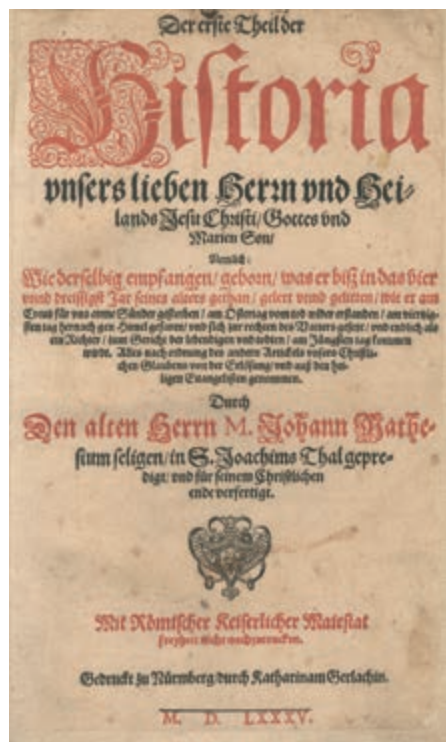 Der erste Theil der
Historia
vnsers lieben Herrn vnd Hei⸗
lands Jesu Christi/ Gottes vnd
Marien Son/
Nemlich:
Wie derselbig empfangen/ geborn/ was er biß in das vier
vnnd dreissigst Jar seines alters gethan/ gelert vnnd gelitten/ wie er am
Creutz für vns arme Sünder gestorben/ am Ostertag vom tod wider erstanden/ am viertzig⸗
sten tag hernach gen Himel gefaren/ vnd sich zur rechten des Vaters gesetzt/ vnd endlich als
ein Richter/ zum Gericht der lebendigen vnd todten/ am Jüngsten tag kommen
wirdt. Alles nach ordnung des andern Artickels vnsers Christli⸗
chen Glaubens von der Erlösung/ vnd auß den hei⸗
ligen Euangelisten genommen.
Durch
Den alten Herrn M. Johann Mathe⸗
sium seligen/ in S. Joachims Thal gepre⸗
digt/ vnd für seinem Christlichen
ende verfertigt.
Mit Römischer Keiserlicher Maiestat
freyheit nicht nachzudrucken.
Gedruckt zu Nürmberg/ durch Katharinam Gerlachin.
M. D. LXXXV.